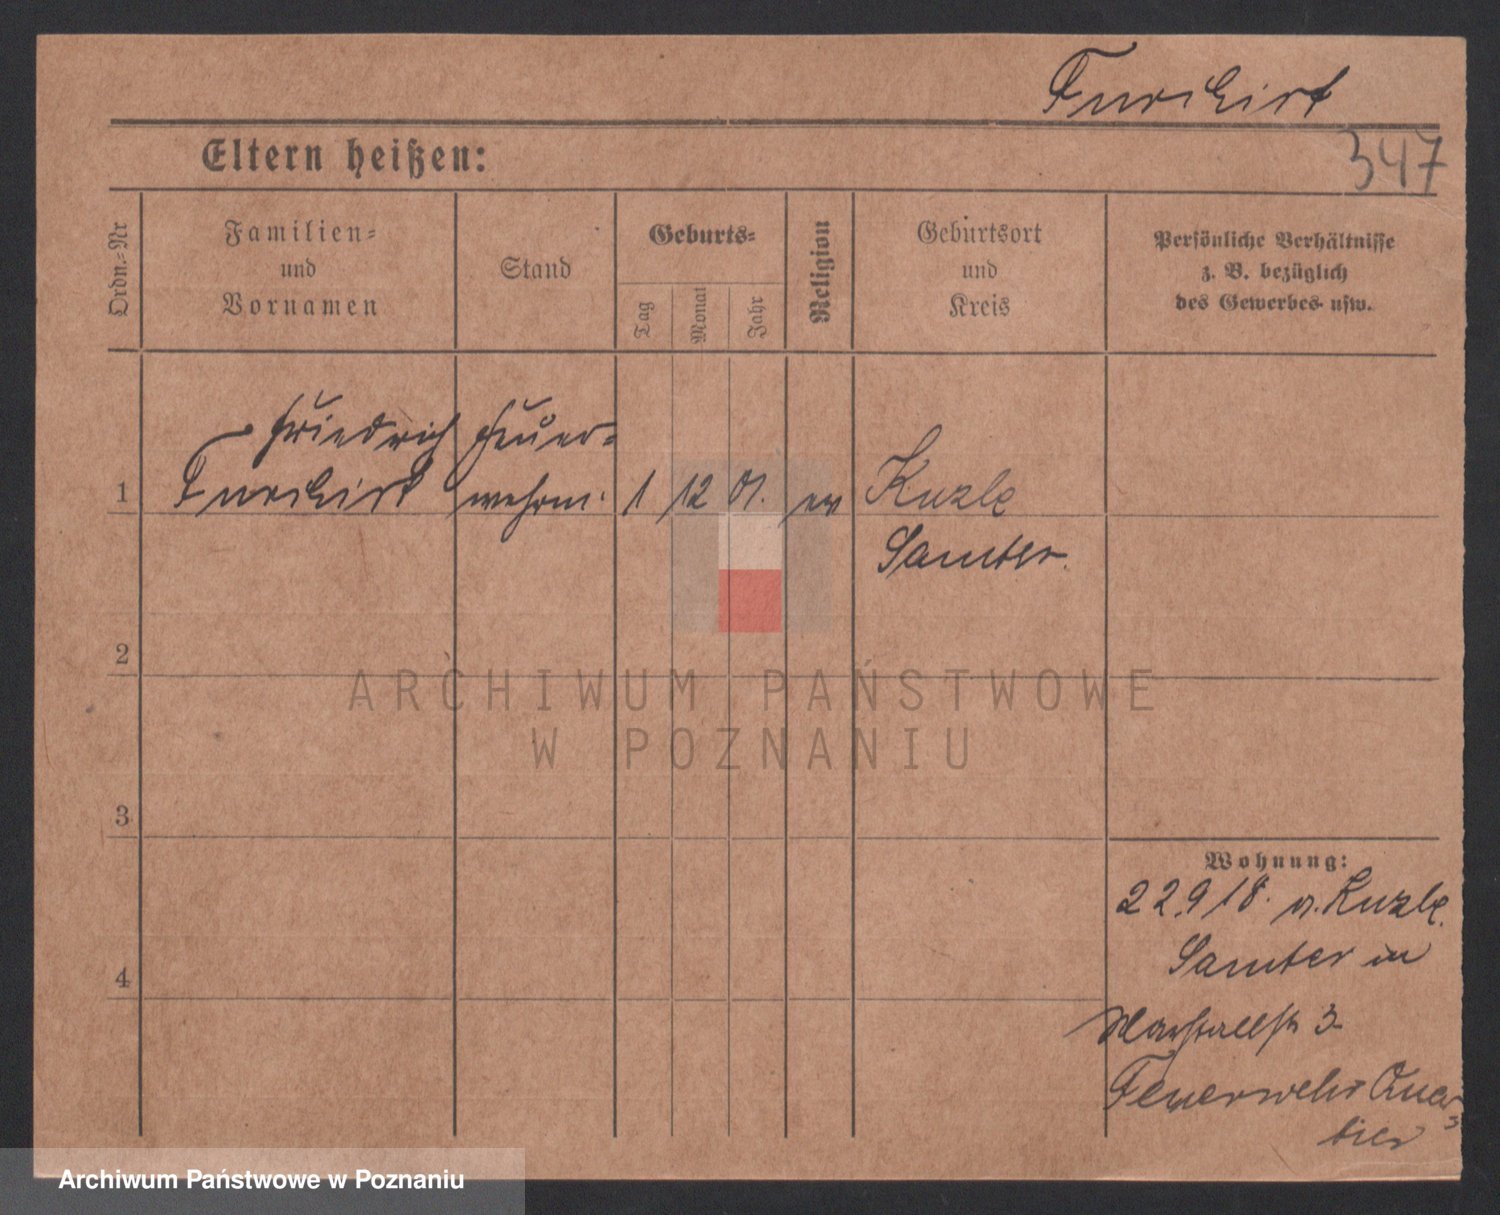 347
Eltern heißen:
Ordn.-Nr
Familien-
und
Vornamen
Stand
Geburts-
Tag
Monat
Jahr
Religion
Geburtsort
und
Kreis
Persönliche Verhältnisse
z. B. bezüglich
des Gewerbes usw.
Friedrich Feuer-
1 wehrm. 1 12 01. ev
Samter.
2
3
4
ARCHIWUM PAŃSTWOWE
W POZNANIU
Wohnung:
22.9 18.
Samter in
Marstallstr 3
Feuerwehr Quar
tier
Archiwum Państwowe w Poznaniu